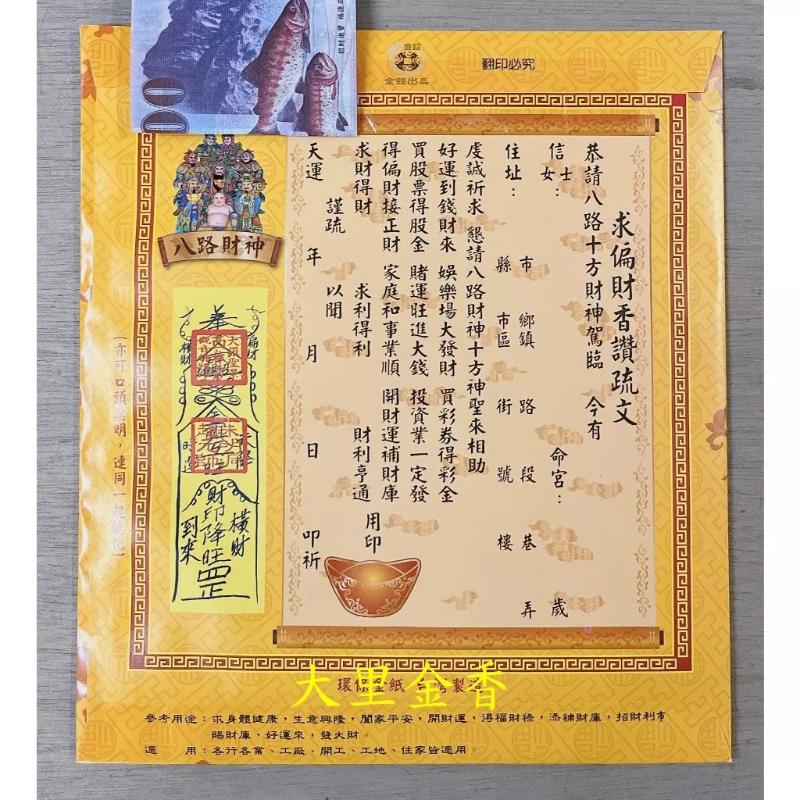 00
金鏹
金鏹出品
翻印必究
求偏財香讚疏文
恭請八路十方財神駕臨 今有
信士女： 命宮： 歲
住址： 縣市 市區鄉鎮 街路 號段 樓巷弄
虔誠祈求 懇請八路財神十方神聖來相助
好運到錢財來 娛樂場大發財 買彩券得彩金
買股票得股金 賭運旺進大錢 投資業一定發
得偏財接正財 家庭和事業順 開財運補財庫
求財得財 求利得利 財利亨通
謹疏 以聞 用印
天運 年 月 日 叩祈
八路財神
奉
偏財
橫財
財印降旺罡
橫財
到來
大里金香
環保金紙 台灣製造
參考用途：求身體健康，生意興隆，闔家平安，開財運，得福財祿，添補財庫，招財利市
賜財庫，好運來，發大財。
適 用：各行各業、工廠、開工、工地、住家皆適用。